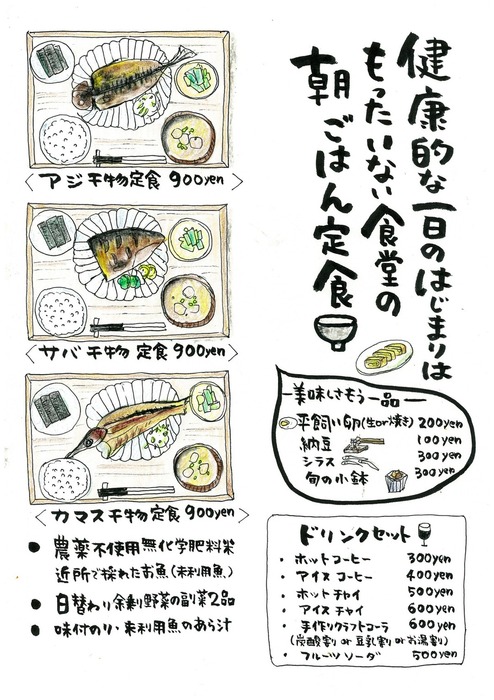 健康的な一日のはじまりは
もったいない食堂の
朝ごはん定食
〈アジ干物定食 900yen〉
〈サバ干物定食 900yen〉
〈カマス干物定食 900yen〉
● 農薬不使用無化学肥料米
近所で採れたお魚(未利用魚)
● 日替わり余剰野菜の副菜2品
● 味付のり・未利用魚のあら汁
美味しさもう一品
平飼い卵(生or焼き) 200yen
納豆 100yen
シラス 300yen
旬の小鉢 300yen
ドリンクセット
・ホットコーヒー 300yen
・アイスコーヒー 400yen
・ホットチャイ 500yen
・アイスチャイ 600yen
・手作りクラフトコーラ 600yen
(炭酸割り or 豆乳割り or お湯割り)
・フルーツソーダ 500yen